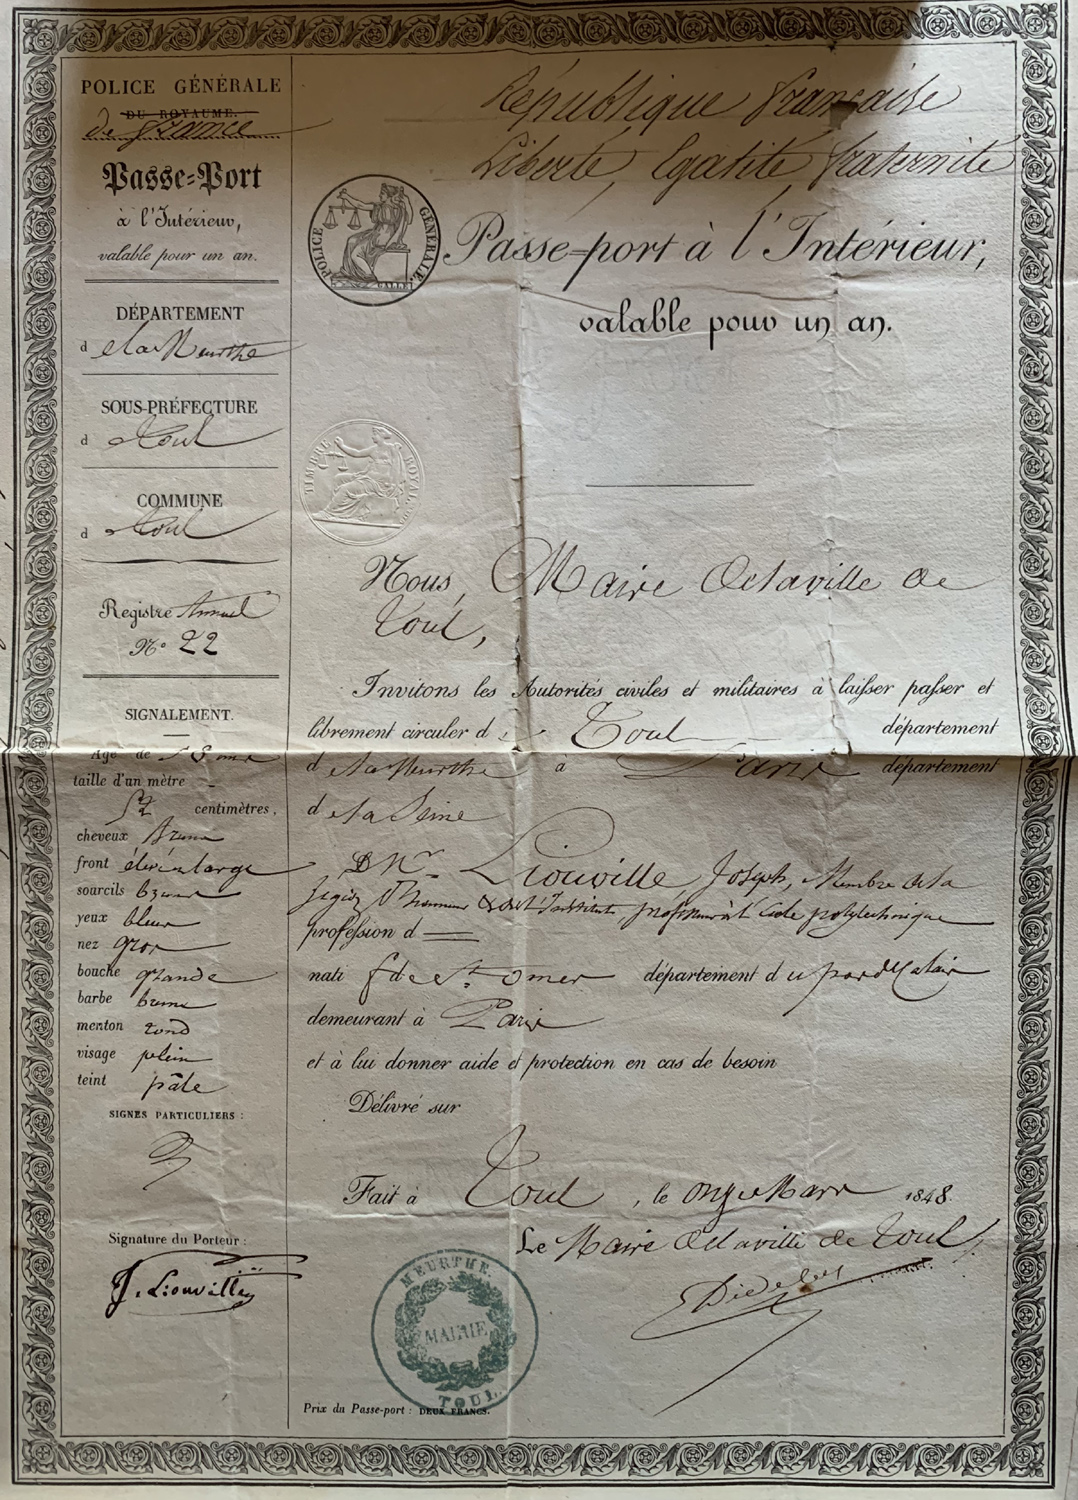 POLICE GÉNÉRALE
DU ROYAUME.
de France
Passe=Port
à l'Intérieur,
valable pour un an.
DÉPARTEMENT
de la Meurthe
SOUS-PRÉFECTURE
de Toul
COMMUNE
de Toul
Registre Annuel
N.o 22
SIGNALEMENT.
Age de 38 ans
taille d'un mètre
centimètres,
cheveux bruns
front élevé et large
sourcils bruns
yeux bleus
nez gros
bouche grande
barbe brune
menton rond
visage plein
teint pâle
SIGNES PARTICULIERS :
Signature du Porteur :
J. Liouville
République française
Liberté, Egalité, fraternité
POLICE GÉNÉRALE.
GALLE
Passe-port à l'Intérieur,
valable pour un an.
TIMBRE ROYAL
Nous, Maire de la ville de
Toul,
Invitons les Autorités civiles et militaires à laisser passer et
librement circuler de Toul département
de la Meurthe à Paris département
de la Seine
L Mr Liouville, Joseph, Membre de la
légion d'honneur & de l'Institut, professeur à l'école polytechnique
profession d
natif de St. Omer département du pas de Calais
demeurant à Paris
et à lui donner aide et protection en cas de besoin
Délivré sur
Fait à Toul, le onze Mars 1848.
Le Maire de la ville de Toul
MEURTHE
MAIRIE
TOUL
Prix du Passe-port : DEUX FRANCS.